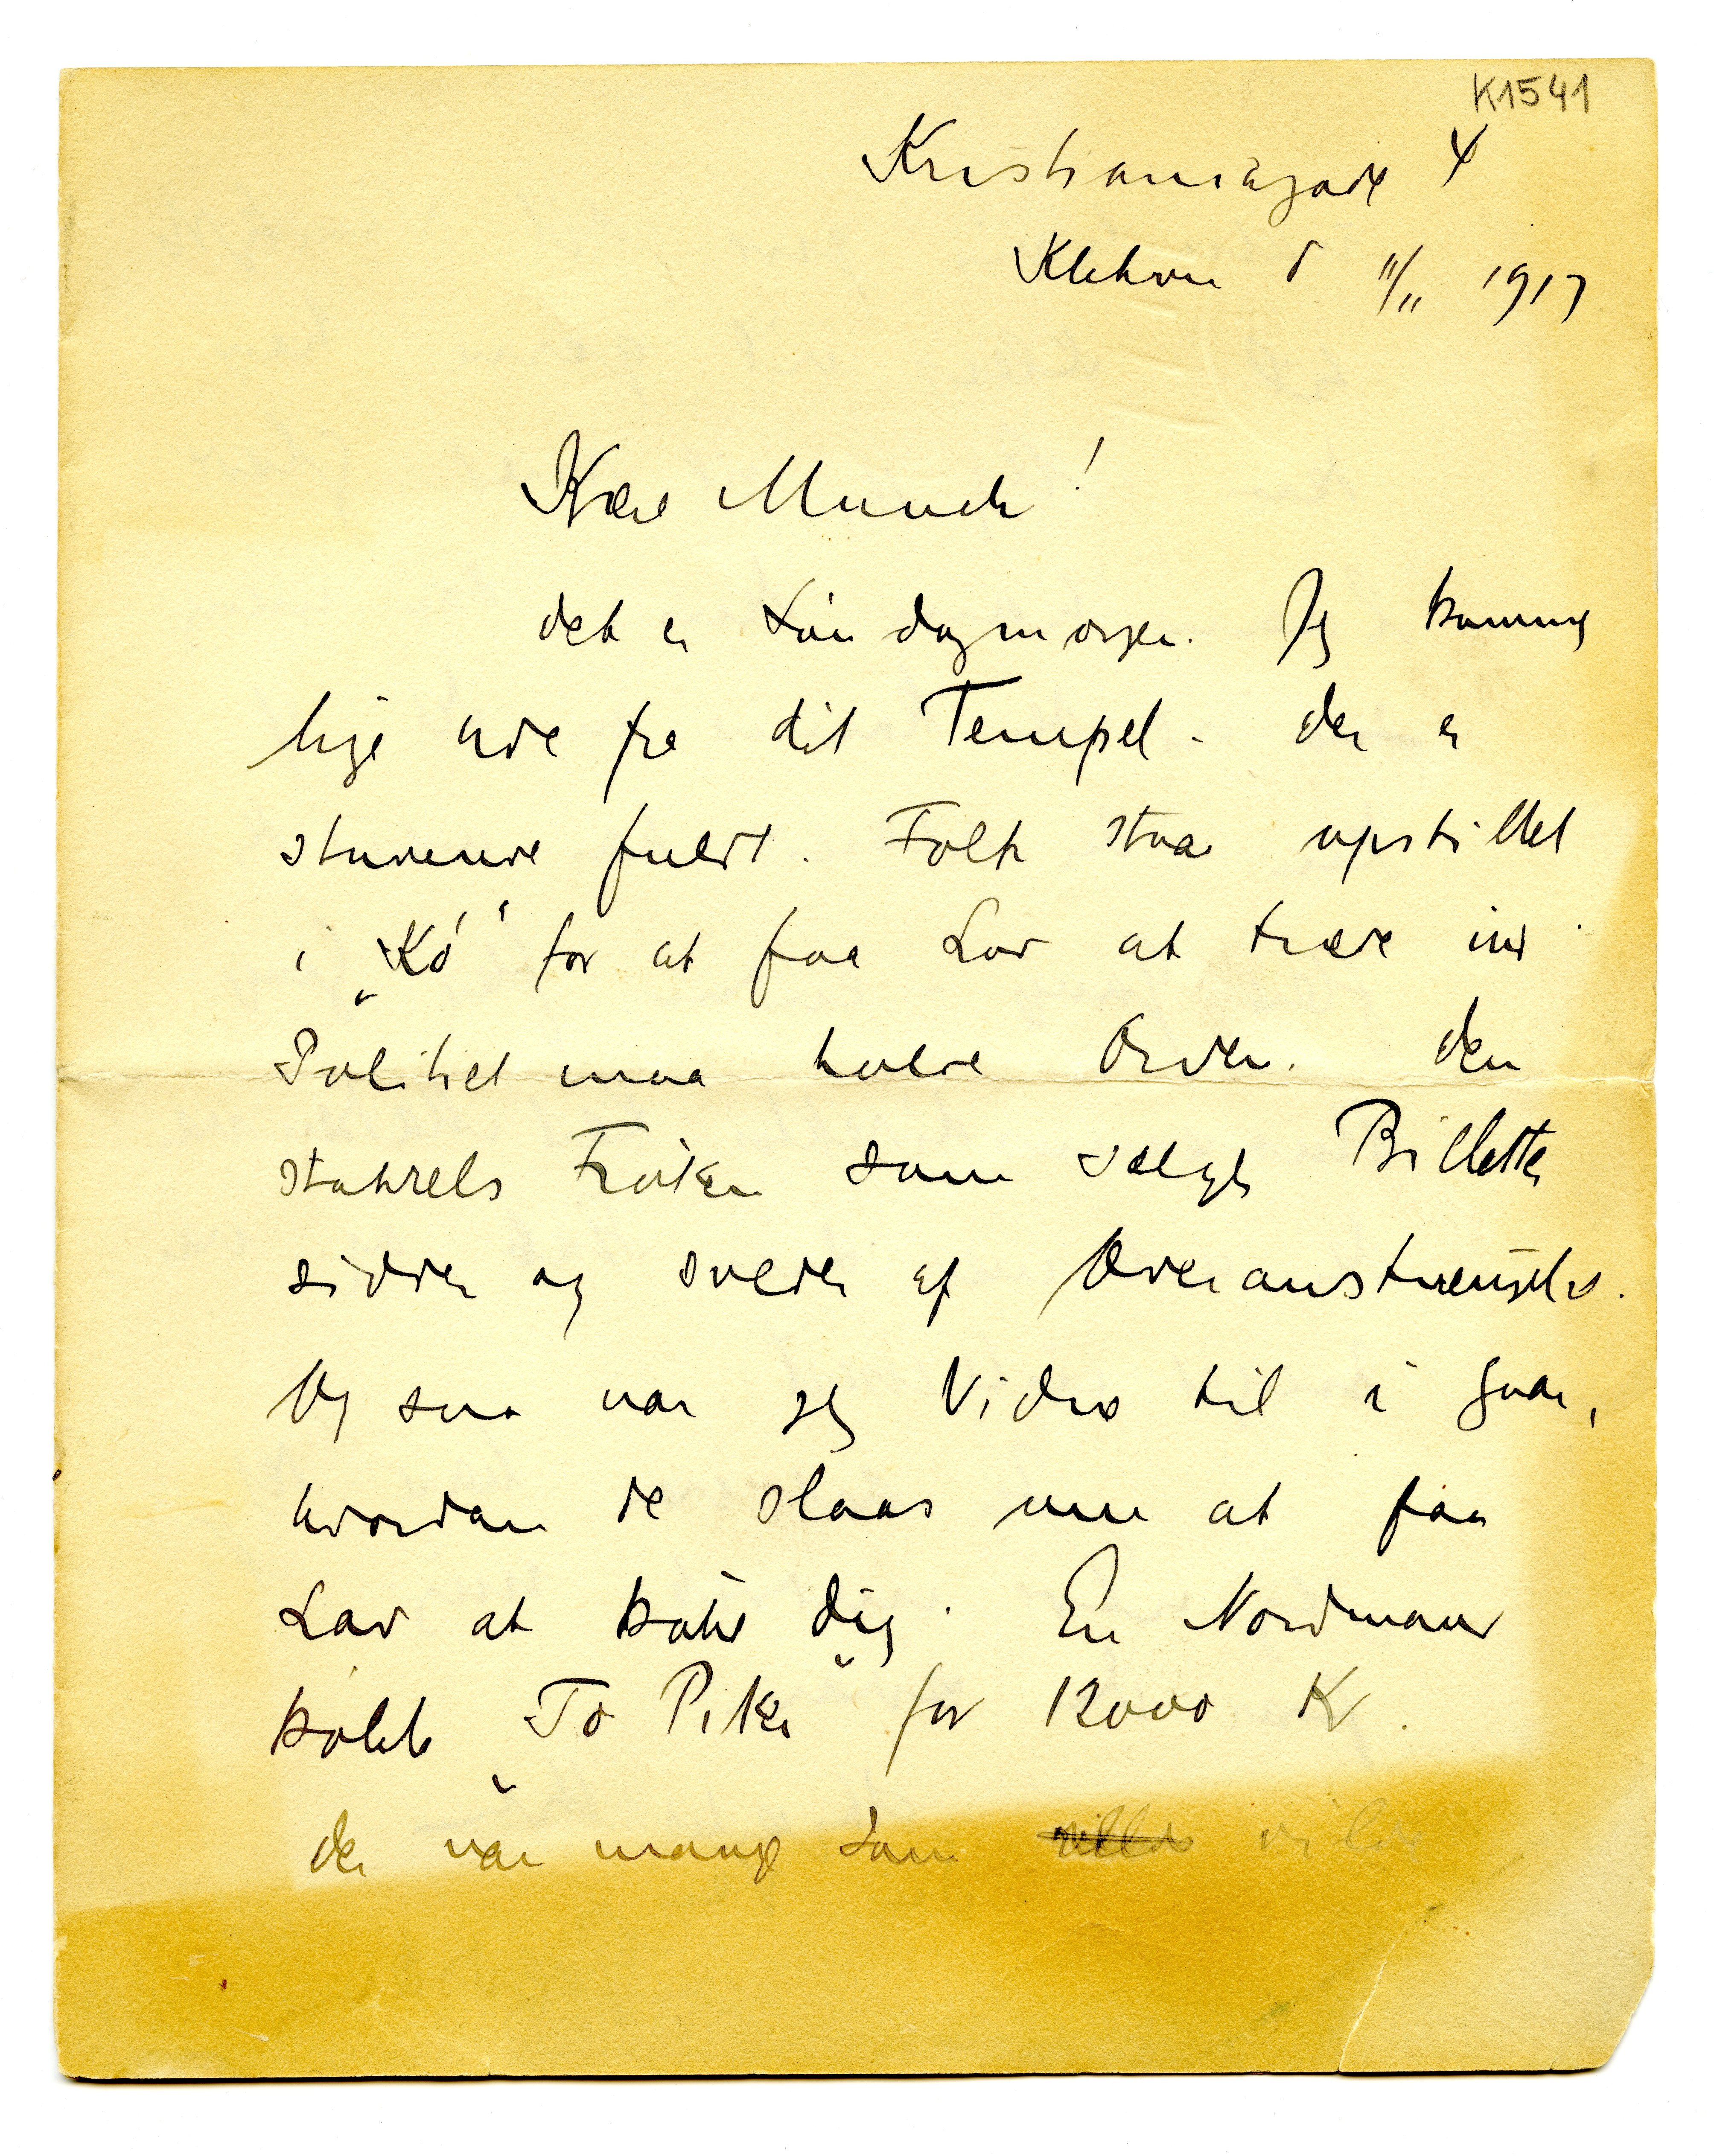 K1541
Kristianiagade 4
Kbhvn d 11/11 1917
Kære Munch!
det er Söndagmorgen. Jeg kommer
lige ude fra dit Tempel. der er
stuvende fuldt. Folk staar opstillet
i „Kö" for at faa Lov at træde ind.
Politiet maa holde Orden. den
stakkels Fröken som sælger Billetter
sidder og sveder af Overanstrengelse.
Og saa var jeg Vidne til i Gaar,
hvordan de slaas om at faa
Lov at köbe dig. En Nordmand
köbte „To Piker" for 12000 K.
der var mange som ville vilde